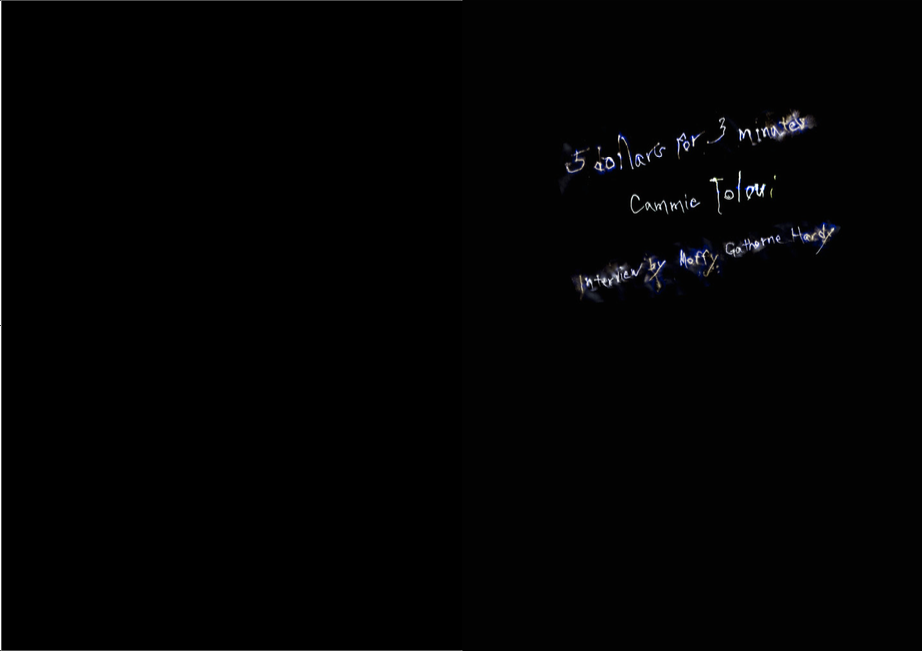 5 dollars for 3 minutes
Cammie Toloui
Interview by Moffy Gathorne Hardy